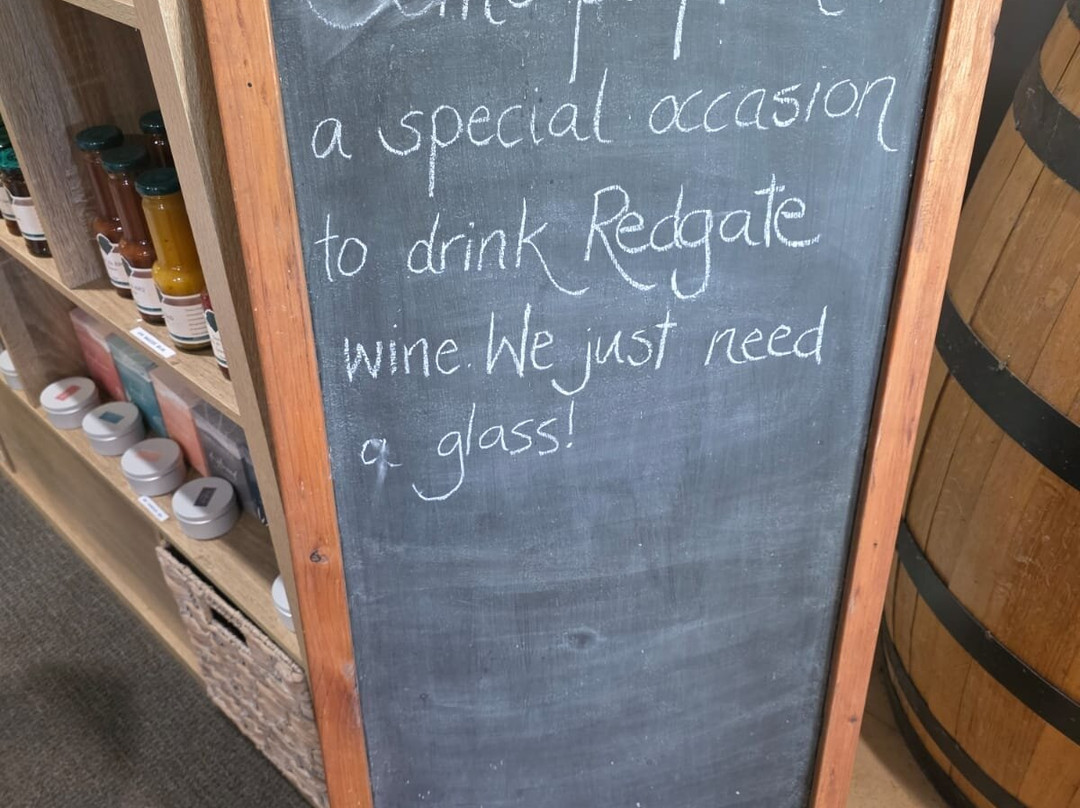 a special occasion
to drink Redgate
wine. We just need
a glass!